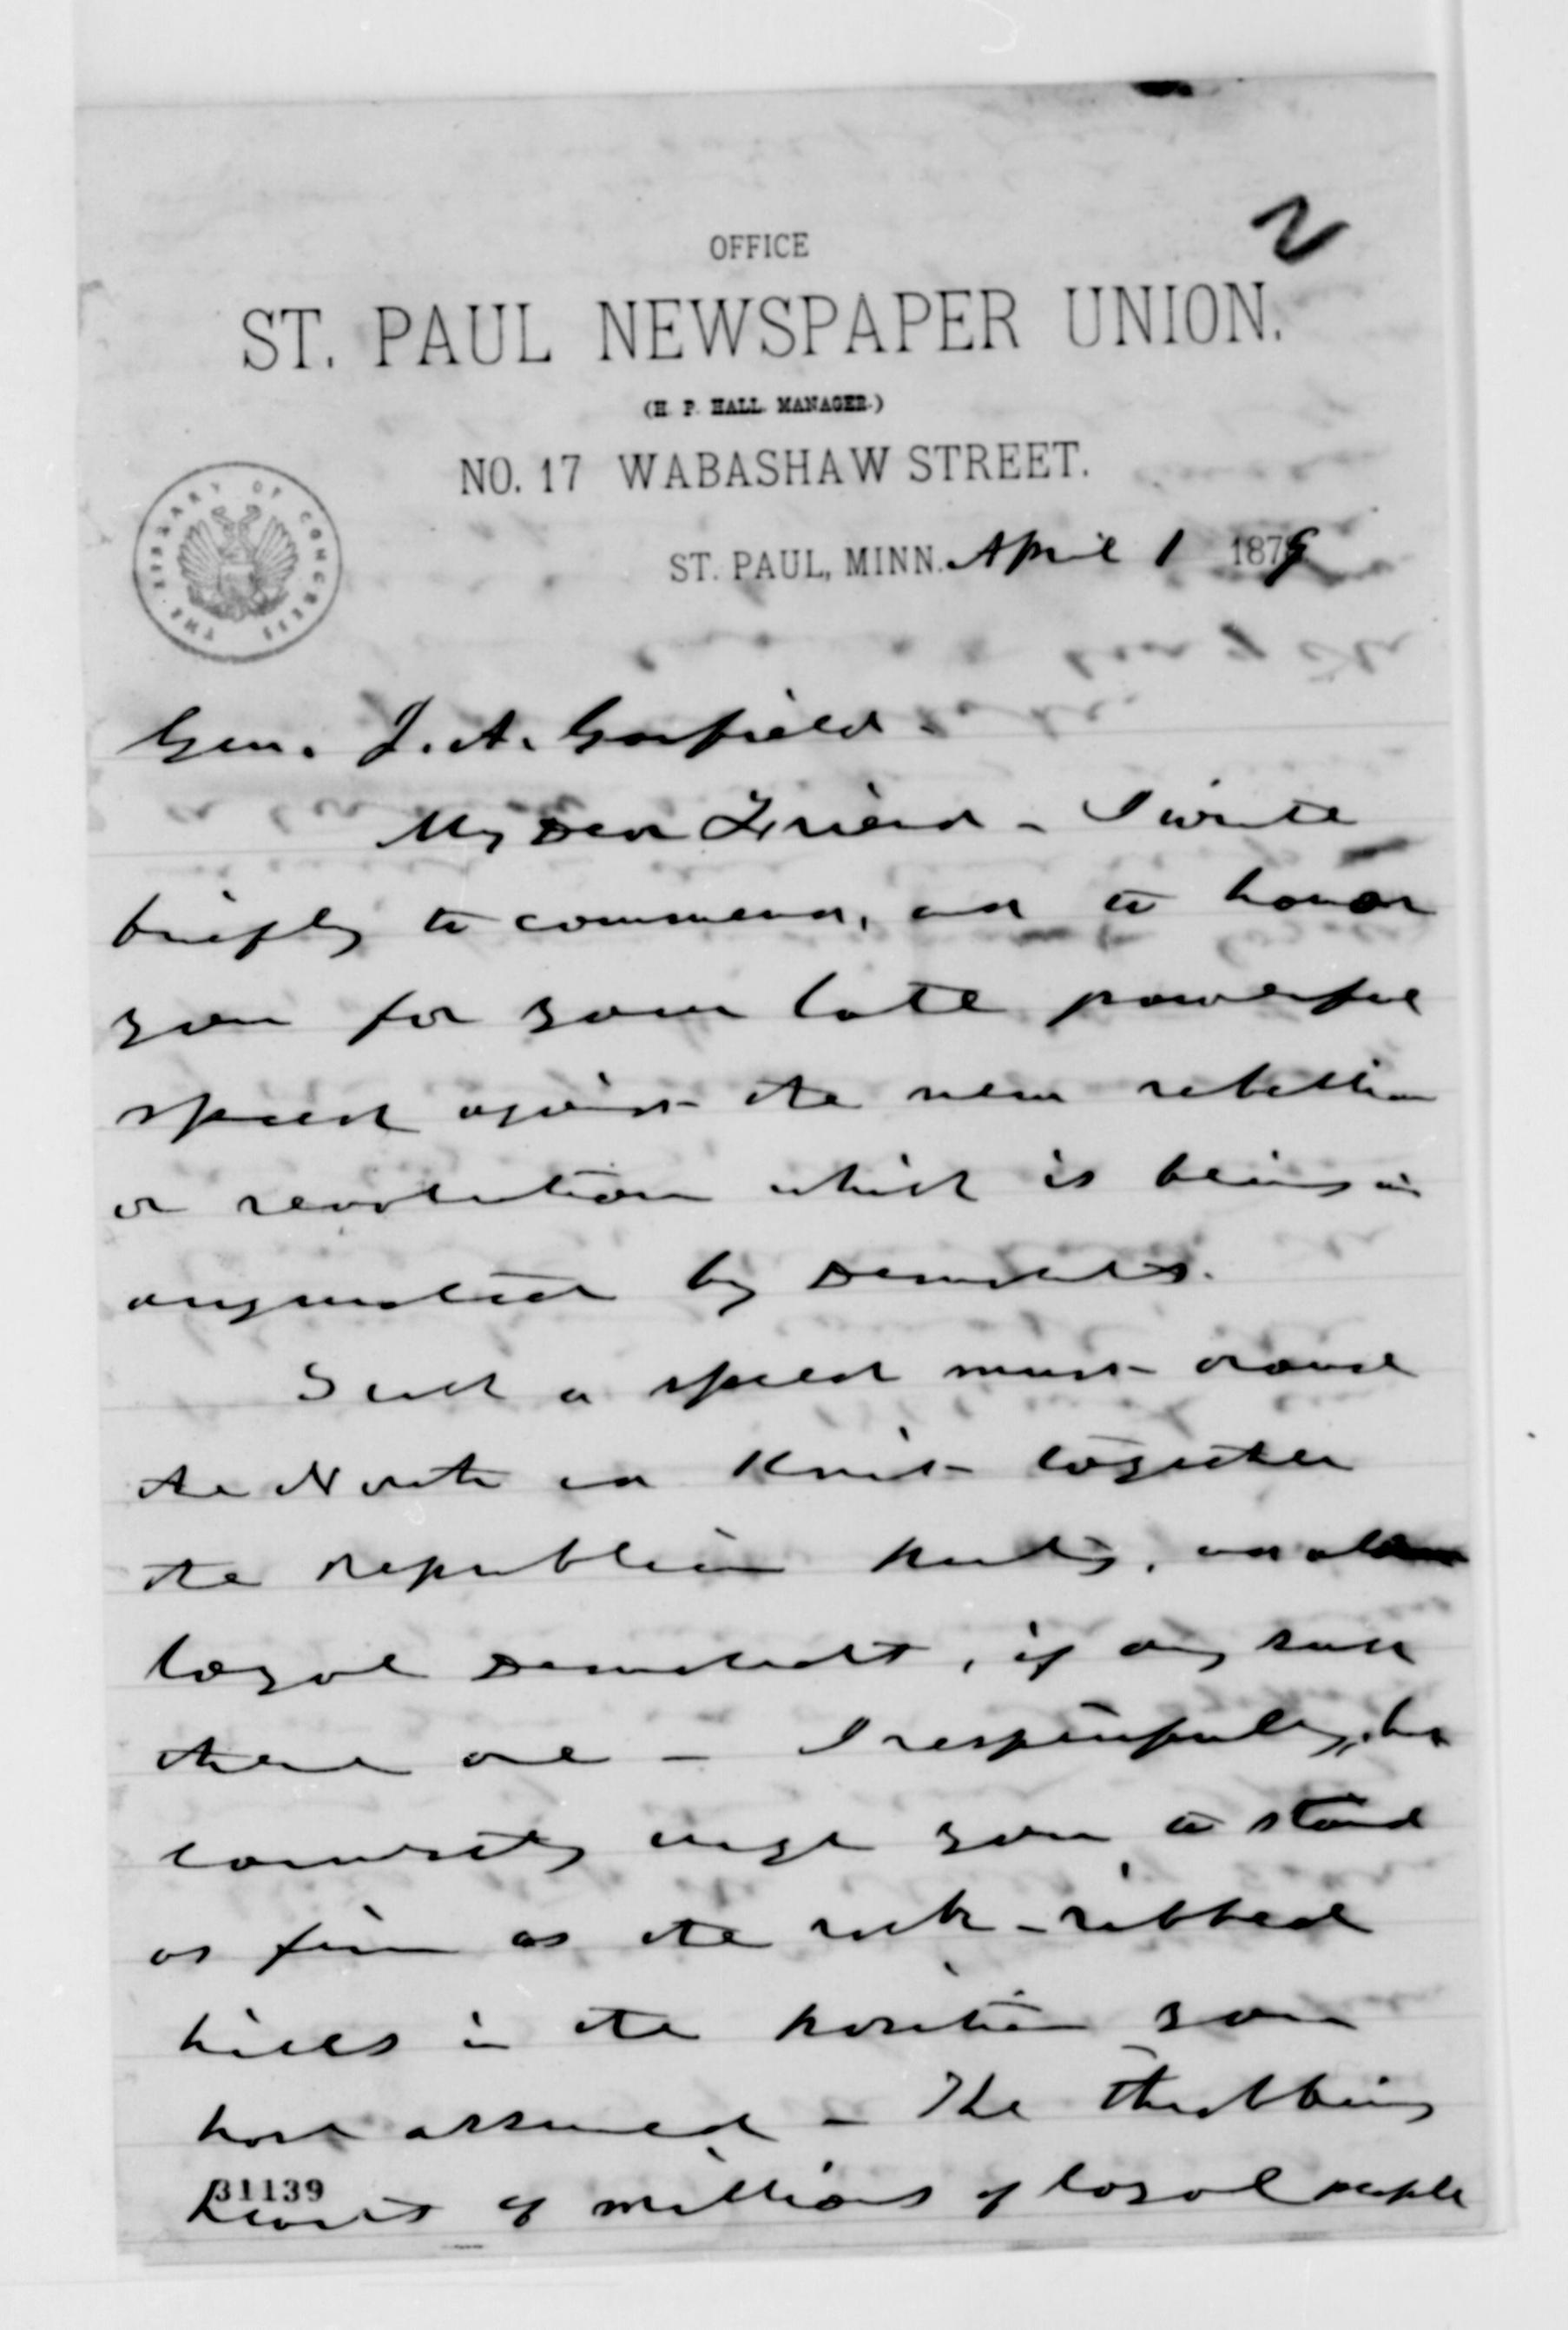 2
OFFICE
ST. PAUL NEWSPAPER UNION.
(H. P. HALL. MANAGER.)
NO. 17 WABASHAW STREET.
THE LIBRARY OF CONGRESS
ST. PAUL, MINN. April 1 1879
Gen. J. A. Garfield.
My Dear Friend - I write
briefly to commend, and to honor
you for your late powerful
speech against the new rebellion
or revolution which is being in
augurated by Democrats.
Such a speech must arouse
the North and Knit together
the Republican party, and all
loyal Democrats, if any such
there are - I respectfully, but
earnestly urge you to stand
as firm as the rock-ribbed
hills in the position you
have assumed - The throbbing
hearts of millions of loyal people
31139